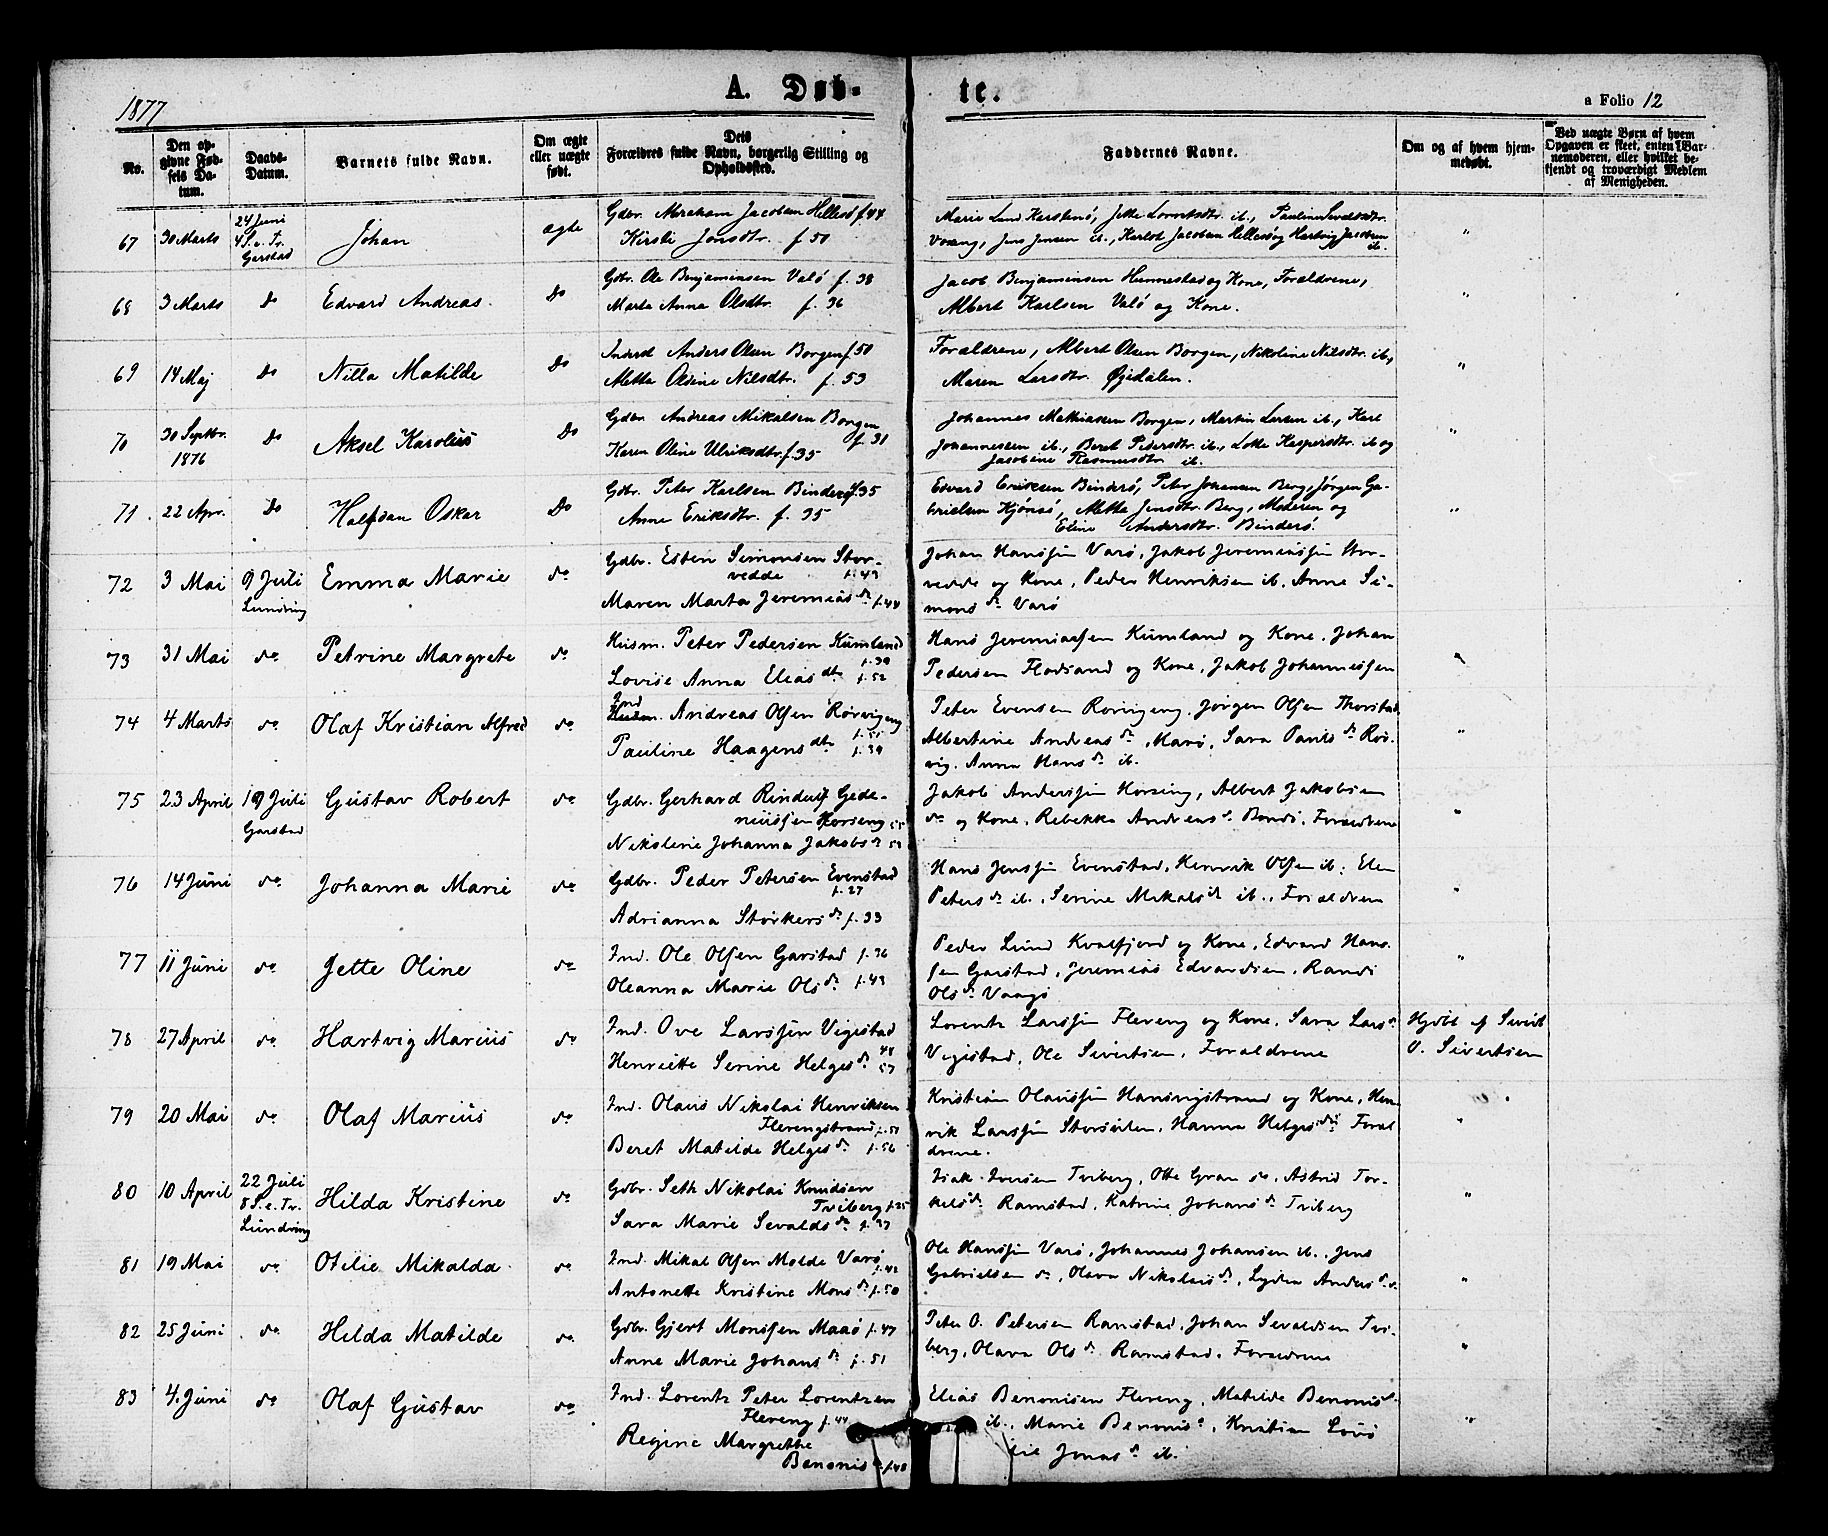 1877
A. Døb-
te.
a Folio 12
No.
Den op-
givne Fød-
sels Da-
tum.
Daabs-
Datum.
Barnets fulde Navn.
Om ægte
eller uægte
født.
Dets
Forældres fulde Navn, borgerlig Stilling og
Opholdssted.
Faddernes Navne.
Om og af hvem hjem-
medøbt.
Ved uægte Børn af hvem
Opgaven er skeet, enten Bar-
nemoderen, eller hvilket be-
kjendt og troværdigt Medlem
af Menigheden.
67
30 Marts
24 Juni
4 S. e. Tr.
Garstad
Johan
ægte
Gdbr. Abraham Jacobsen Hellesø f. 44
Kirsti Jonsdtr. f. 50
Marie Lund Karstenø, Jette Lorentsdtr. ib., Pauline Sevaldsdtr.
Voxeng, Jens Jensen ib., Karlot Jacobsen Hellesø og Hartvig Jacobsen
ib.
"
68
3 Marts
Do
Edvard Andreas.
Do
Gdbr. Ole Benjaminsen Valø f. 38
Marta Anna Olsdtr. f. 36
Jacob Benjaminsen Hunnestad og Kone, Forældrene,
Albert Karlsen Valø og Kone.
"
69
14 Maj
Do
Nilla Matilde
Do
Inderst Anders Olsen Borgen f. 50
Metta Oldine Nilsdtr. f. 53
Forældrene, Albert Olsen Borgen, Nikoline Nilsdtr. ib.,
Maren Larsdtr. Øjedalen.
"
70
30 Septbr.
1876
Do
Aksel Karolius
Do
Gdbr. Andreas Mikalsen Borgen
f. 31
Karen Oline Ulriksdtr. f. 35
Johannes Mathiasen Borgen, Martin Larsen ib., Karl
Johannessen ib., Beret Pedersdtr. ib., Lotte Kaspersdtr. ib og
Jacobine Rasmusdtr. ib.
"
71.
22 Apr.
Do
Halfdan Oskar
Do
Gdbr. Peter Karlsen Binderø f. 35
Anne Eriksdtr. f. 35
Edvard Eriksen Binderø, Peter Johansen Berg, Jørgen Ga-
brielsen Kjønsø, Mette Jensdtr. Berg, Moderen og
Eline Andersdtr. Binderø.
"
72
3 Mai
9 Juli
Lundring
Emma Marie
do
Gdbr. Esten Simonsen Stor-
vedde f. 49
Maren Marta Jeremias dtr. f. 44
Johan Hanssen Varø, Jakob Jeremiassen Stor-
vedde og Kone, Peder Henriksen ib. Anne Si-
mons dtr. Varø
73
31 Mai
do
Petrine Margrete
do
Husm. Peter Pedersen Kumland
f. 39
Lovise Anna Elias dtr. f. 52
Hans Jeremiassen Kumland og Kone. Johan
Pedersen Flodsand og Kone, Jakob Johannessen
"
74
4 Marts
do
Olaf Kristian Alfred
do
Ind
Husm. Andreas Olsen Rørvigeng
f. 51
Pauline Haagens dtr. f. 39
Peter Evensen Rørvigeng, Jørgen Olsen Thorstad
Albertine Andreas dtr., Marø, Sara Pauls dtr. Rør-
vig. Anna Hans dtr. ib.
"
75
23 April
19 Juli
Garstad
Gustav Robert
do
Gdbr. Gerhard Rindulf Gede-
niussen Horseng 55
Nikoline Johanna Jakobs dtr. 53
Jakob Anderssen Horseng, Albert Jakobsen
do og Kone. Rebekka Andreas dtr. Bondø. Forældrene
"
76
14 Juni
do
Johanna Marie
do
Gdbr. Peder Petersen Evenstad
f. 27
Adrianna Størkers dtr. f. 33
Hans Jenssen Evenstad, Henrik Olsen ib. Elen
Peters dtr. ib. Serine Mikals dtr. ib., Forældrene
"
77
11 Juni
do
Jette Oline
do
Ind. Ole Olsen Garstad f. 36
Oleanna Marie Ols dtr. f. 43
Peder Lund Kvalfjord og Kone, Edvard Hans-
sen Garstad, Jeremias Edvardsen. Randi
Ols dtr. Vaagø
"
78
27 April
do
Hartvig Marius
do
Ind. Ove Larssen Vigestad
48
Henriette Serine Helges dtr. 57
Lorentz Larssen Flereng og Kone, Sara Lars dtr.
Vigestad, Ole Sivertsen, Forældrene
Hjdbt af Sivert
O. Sivertsen
79
20 Mai
do
Olaf Marius
do
Ind. Olaus Nikolai Henriksen
Flerengstrand f. 51
Beret Matilde Helges dtr. f. 56
Kristian Olaussen Hansvigstrand og Kone, Hen-
rik Larssen Storsulen, Hanna Helges dtr. Foræl-
drene.
"
80
10 April
22 Juli
8 S. e. Tr.
Lundring
Hilda Kristine
do
Gdbr. Seth Nikolai Knudsen
Triberg f. 35
Sara Marie Sevalds dtr. f. 37
Isak Iversen Triberg, Otte Gran do, Astrid Tor-
kels dtr. Ramstad, Katrine Johans dtr. Triberg
"
81
19 Mai
do
Otilie Mikalda
do
Ind. Mikal Olsen Molde Varø
f. 42
Antonette Kristine Mons dtr. f. 50
Ole Hanssen Varø, Johannes Johansen ib., Jens
Gabrielsen do, Olava Nikolais dtr., Lydia Anders dtr. do
"
82
25 Juni
do
Hilda Matilde
do
Gdbr. Gjert Monssen Maaø f. 47
Anne Marie Johans dtr. f. 51
Peter O. Petersen Ramstad, Johan Sevaldsen Tri-
berg, Olava Ols dtr. Ramstad, Forældrene
"
83
4. Juni
do
Olaf Gustav
do
Ind. Lorentz Peter Lorentzen
Flereng f. 44
Regine Margrethe
Benonis dtr. f. 48
Elias Benonisen Flereng, Matilde Benonis dtr.
ib., Marie Benonis dtr., Kristian Lovø
Jonas dtr. ib.
"